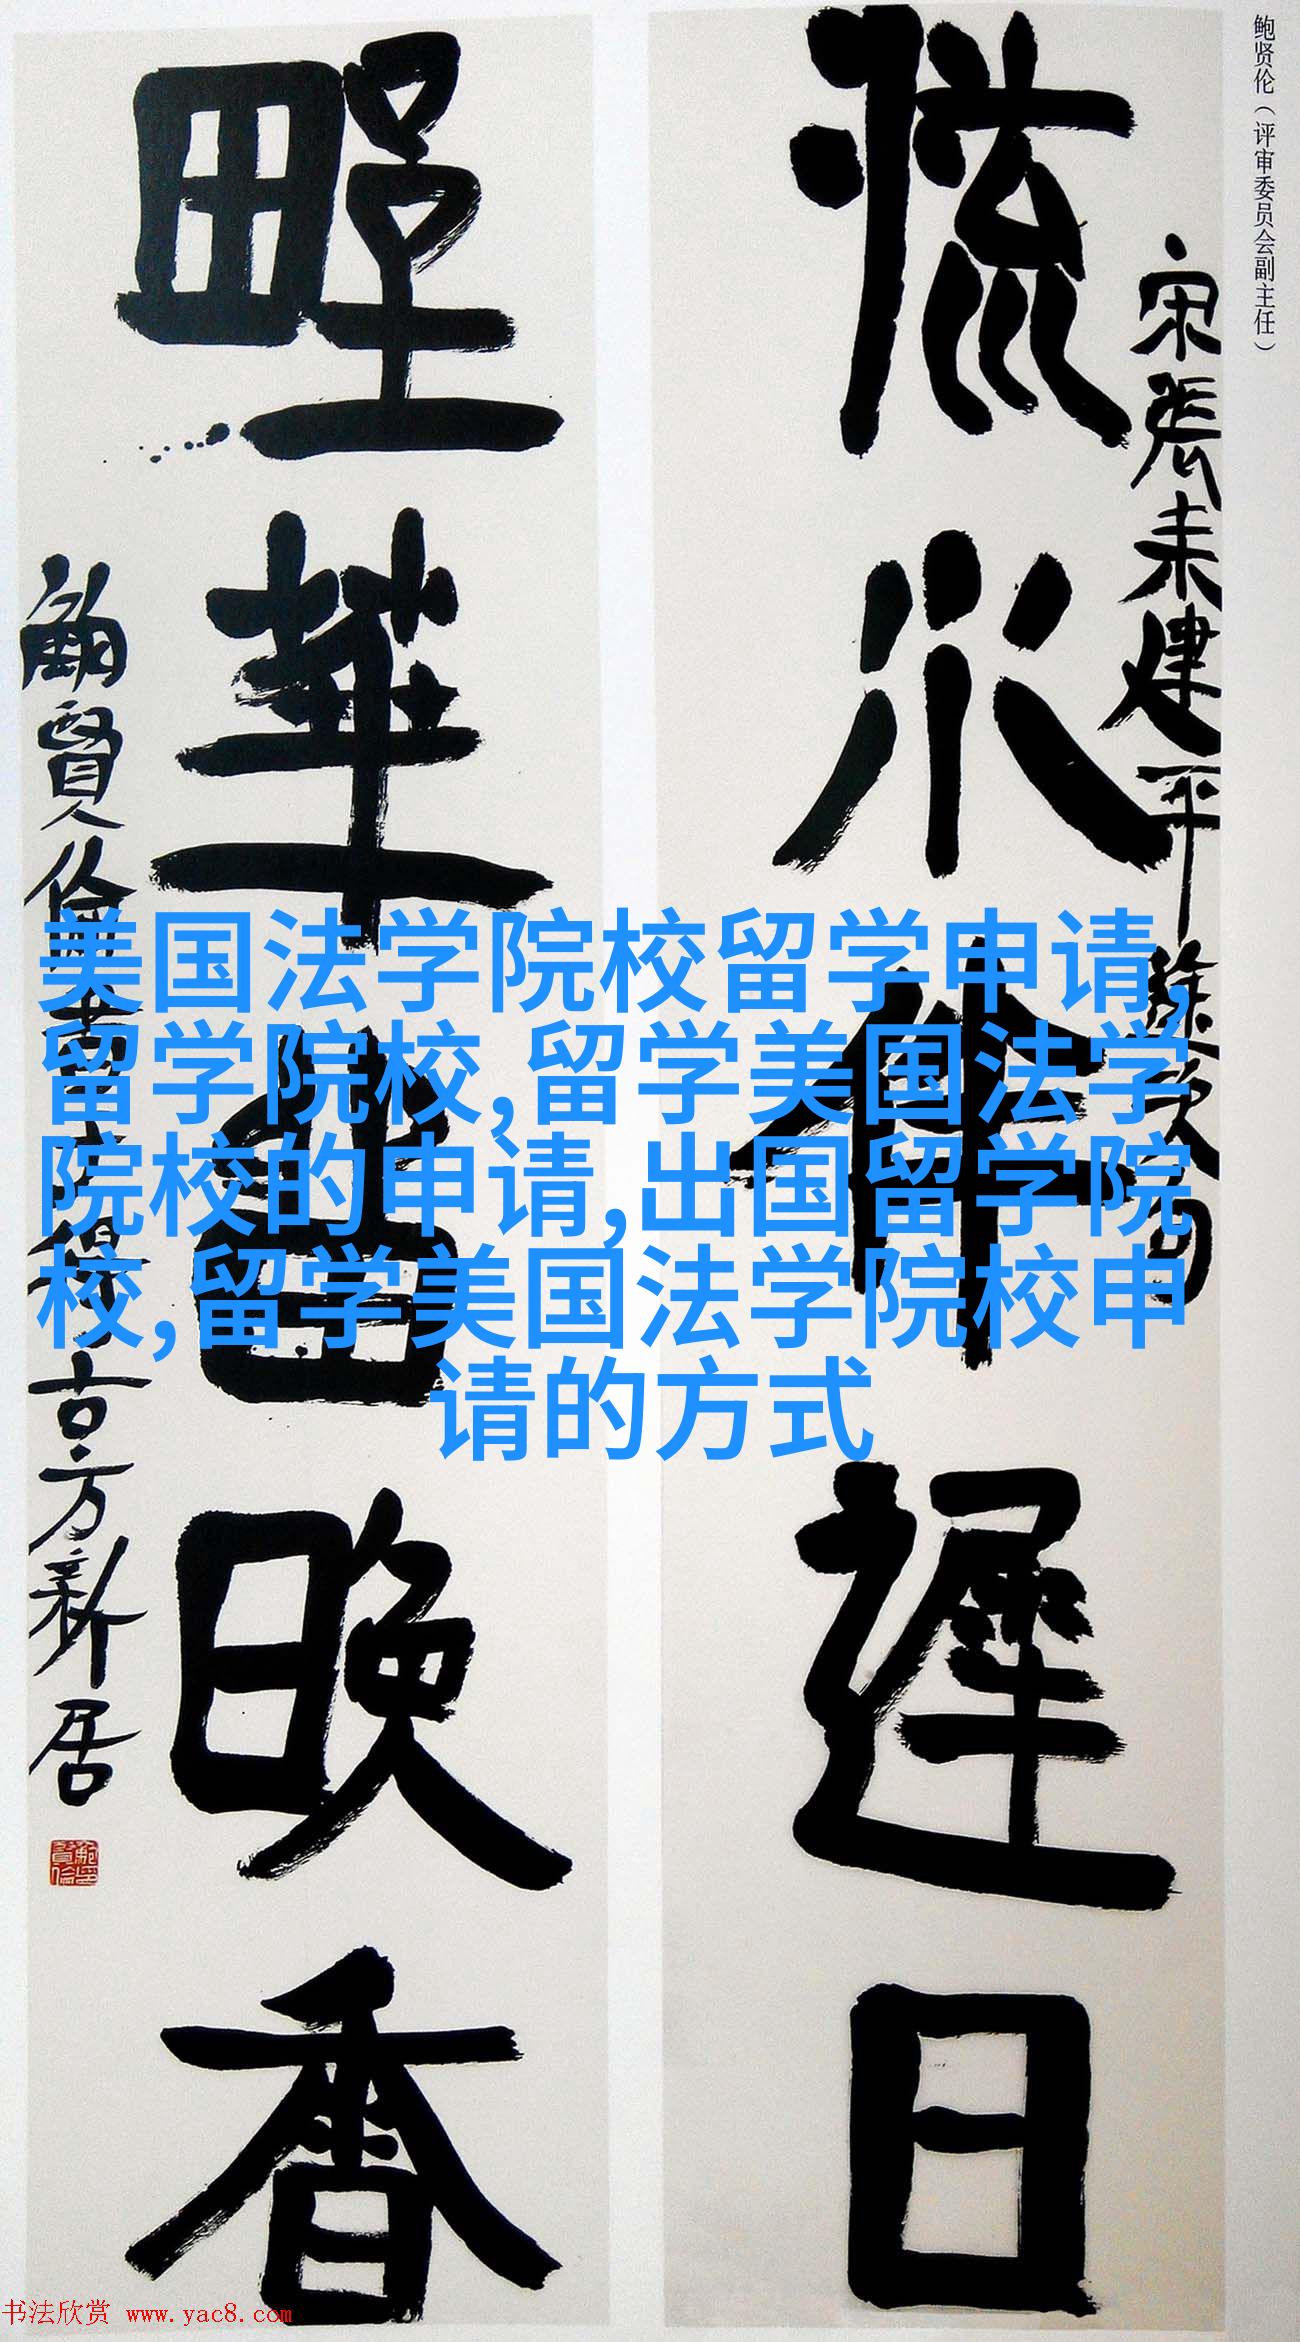 鲍贤伦（评审委员会副主任）
流水伴遲日
宋張耒建平
野華留晚香
鮑賢倫
古方新居
美国法学院校留学申请,
留学院校,留学美国法学
院校的申请,出国留学院
校,留学美国法学院校申
请的方式
书法欣赏 www.yac8.com